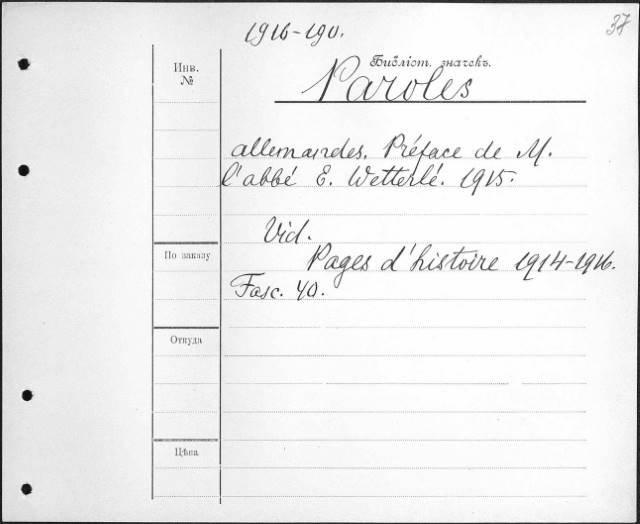 37
1916-190.
Инв.
№
Библіот. значекъ.
Paroles
allemandes. Préface de M.
l'abbé E. Wetterlé. 1915.
Vid.
По заказу
Pages d'histoire 1914-1916.
Fasc. 40.
Откуда
Цѣна